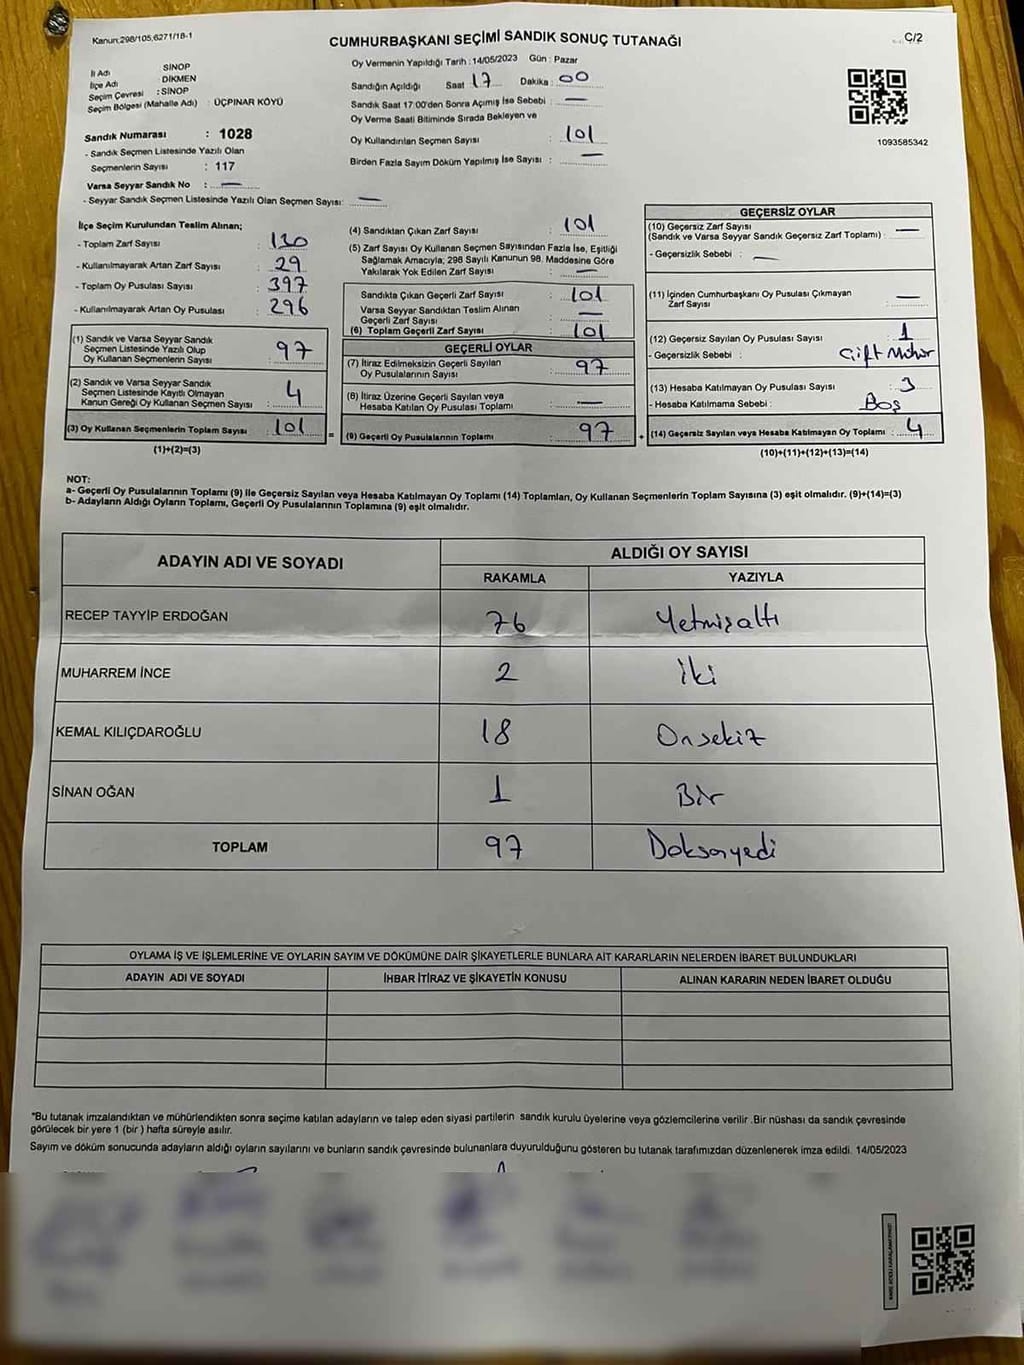 Kanun:298/105,6271/18-1
C/2
CUMHURBAŞKANI SEÇİMİ SANDIK SONUÇ TUTANAĞI
İl Adı : SİNOP
İlçe Adı : DİKMEN
Seçim Çevresi : SİNOP
Seçim Bölgesi (Mahalle Adı) : ÜÇPINAR KÖYÜ
Sandık Numarası : 1028
- Sandık Seçmen Listesinde Yazılı Olan
Seçmenlerin Sayısı : 117
Varsa Seyyar Sandık No : —
- Seyyar Sandık Seçmen Listesinde Yazılı Olan Seçmen Sayısı: —
Oy Vermenin Yapıldığı Tarih : 14/05/2023 Gün : Pazar
Sandığın Açıldığı Saat 17 Dakika : 00
Sandık Saat 17:00'den Sonra Açımış İse Sebebi : —
Oy Verme Saati Bitiminde Sırada Bekleyen ve
Oy Kullandırılan Seçmen Sayısı : 101
Birden Fazla Sayım Döküm Yapılmış İse Sayısı : —
1093585342
İlçe Seçim Kurulundan Teslim Alınan;
- Toplam Zarf Sayısı : 130
- Kullanılmayarak Artan Zarf Sayısı : 29
- Toplam Oy Pusulası Sayısı : 397
- Kullanılmayarak Artan Oy Pusulası : 296
(1) Sandık ve Varsa Seyyar Sandık
Seçmen Listesinde Yazılı Olup
Oy Kullanan Seçmenlerin Sayısı : 97
(2) Sandık ve Varsa Seyyar Sandık
Seçmen Listesinde Kayıtlı Olmayan
Kanun Gereği Oy Kullanan Seçmen Sayısı : 4
(3) Oy Kullanan Seçmenlerin Toplam Sayısı : 101
(1)+(2)=(3)
(4) Sandıktan Çıkan Zarf Sayısı : 101
(5) Zarf Sayısı Oy Kullanan Seçmen Sayısından Fazla İse, Eşitliği
Sağlamak Amacıyla; 298 Sayılı Kanunun 98. Maddesine Göre
Yakılarak Yok Edilen Zarf Sayısı : —
Sandıkta Çıkan Geçerli Zarf Sayısı : 101
Varsa Seyyar Sandıktan Teslim Alınan
Geçerli Zarf Sayısı : —
(6) Toplam Geçerli Zarf Sayısı : 101
GEÇERLİ OYLAR
(7) İtiraz Edilmeksizin Geçerli Sayılan
Oy Pusulalarının Sayısı : 97
(8) İtiraz Üzerine Geçerli Sayılan veya
Hesaba Katılan Oy Pusulası Toplamı : —
= (9) Geçerli Oy Pusulalarının Toplamı : 97
GEÇERSİZ OYLAR
(10) Geçersiz Zarf Sayısı
(Sandık ve Varsa Seyyar Sandık Geçersiz Zarf Toplamı) : —
- Geçersizlik Sebebi : —
(11) İçinden Cumhurbaşkanı Oy Pusulası Çıkmayan
Zarf Sayısı : —
(12) Geçersiz Sayılan Oy Pusulası Sayısı : 1
- Geçersizlik Sebebi : Çift Mühür
(13) Hesaba Katılmayan Oy Pusulası Sayısı : 3
- Hesaba Katılmama Sebebi : Boş
+ (14) Geçersiz Sayılan veya Hesaba Katılmayan Oy Toplamı : 4
(10)+(11)+(12)+(13)=(14)
NOT:
a- Geçerli Oy Pusulalarının Toplamı (9) ile Geçersiz Sayılan veya Hesaba Katılmayan Oy Toplamı (14) Toplamları, Oy Kullanan Seçmenlerin Toplam Sayısına (3) eşit olmalıdır. (9)+(14)=(3)
b- Adayların Aldığı Oyların Toplamı, Geçerli Oy Pusulalarının Toplamına (9) eşit olmalıdır.
ADAYIN ADI VE SOYADI
ALDIĞI OY SAYISI
RAKAMLA YAZIYLA
RECEP TAYYİP ERDOĞAN 76 Yetmişaltı
MUHARREM İNCE 2 İki
KEMAL KILIÇDAROĞLU 18 Onsekiz
SİNAN OĞAN 1 Bir
TOPLAM 97 Doksanyedi
OYLAMA İŞ VE İŞLEMLERİNE VE OYLARIN SAYIM VE DÖKÜMÜNE DAİR ŞİKAYETLERLE BUNLARA AİT KARARLARIN NELERDEN İBARET BULUNDUKLARI
ADAYIN ADI VE SOYADI İHBAR İTİRAZ VE ŞİKAYETİN KONUSU ALINAN KARARIN NEDEN İBARET OLDUĞU
*Bu tutanak imzalandıktan ve mühürlendikten sonra seçime katılan adayların ve talep eden siyasi partilerin sandık kurulu üyelerine veya gözlemcilerine verilir .Bir nüshası da sandık çevresinde
görülecek bir yere 1 (bir ) hafta süreyle asılır.
Sayım ve döküm sonucunda adayların aldığı oyların sayılarını ve bunların sandık çevresinde bulunanlara duyurulduğunu gösteren bu tutanak tarafımızdan düzenlenerek imza edildi. 14/05/2023